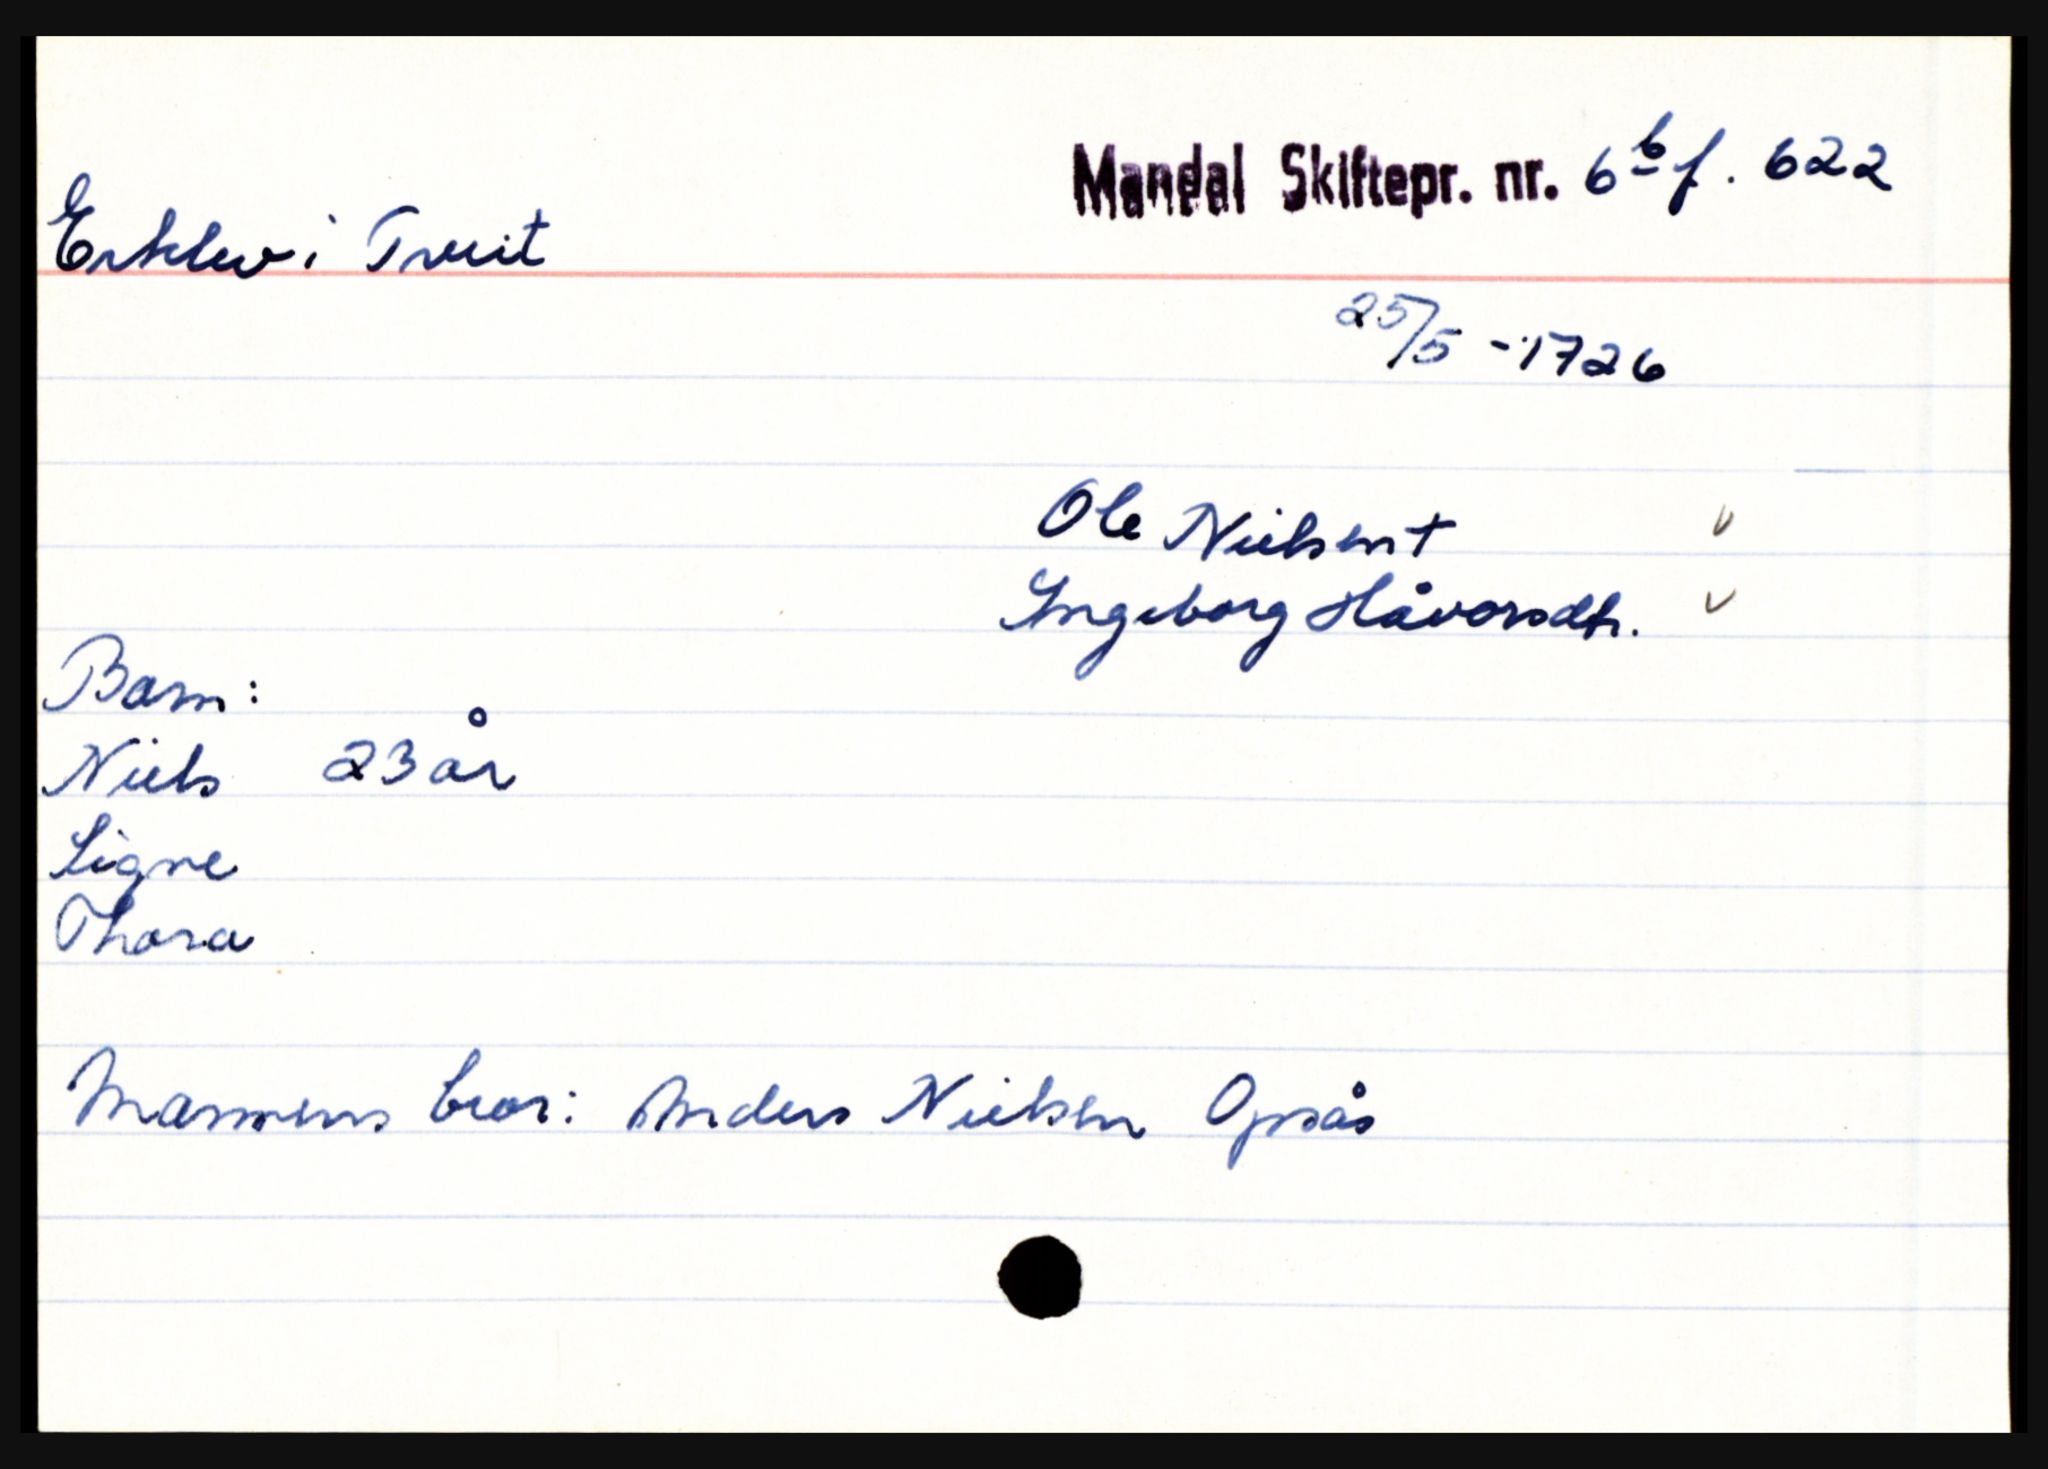 Mandal Skiftepr. nr. 6b f. 622
Erklev i Tveit
25/5 - 1726
Ole Nielsen +
Ingeborg Håvorsdtr.
Barn:
Niels 23 år
Signe
Thora
Mannens bror: Anders Nielsen Opsås